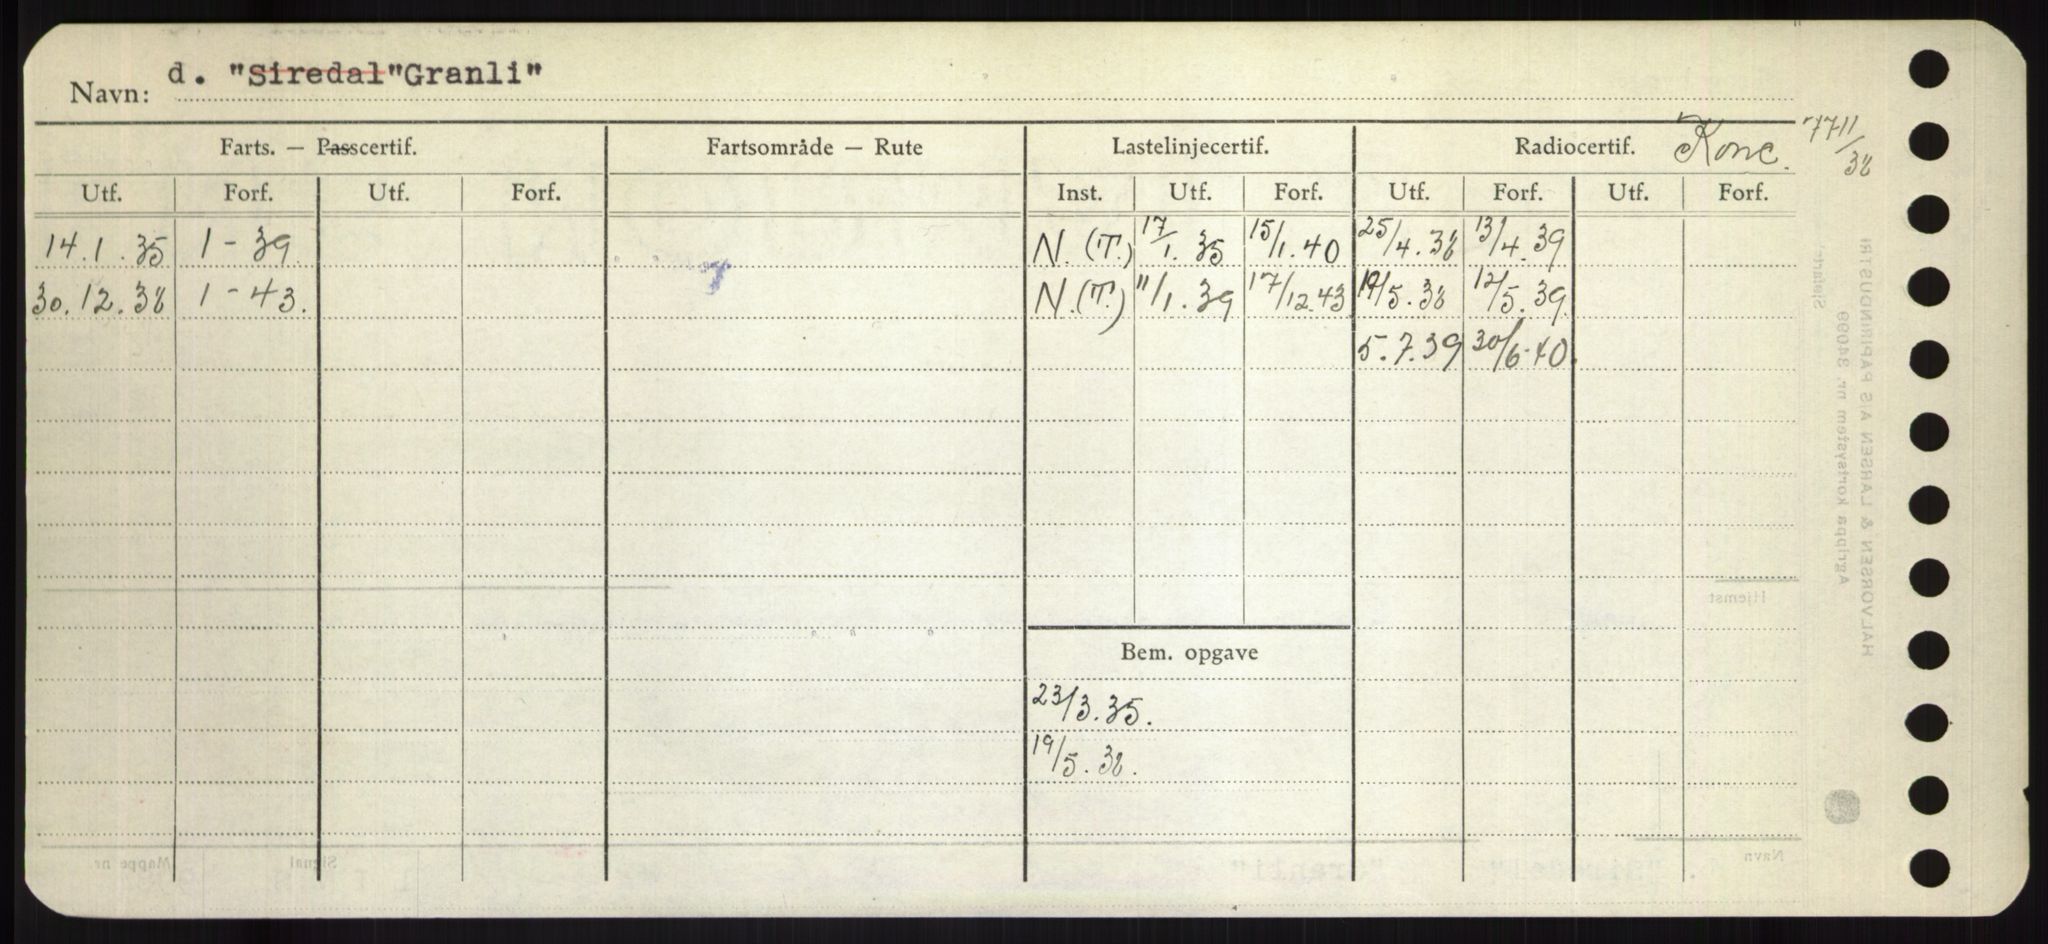 Navn: d. "Siredal"Granli"
Farts. — Passcertif. Fartsområde — Rute Lastelinjecertif. Radiocertif. Konc. 7711/38
Utf. Forf. Utf. Forf. Inst. Utf. Forf. Utf. Forf. Utf. Forf.
14.1.35 1 - 39 N. (T.) 17/1.35 15/1.40 25/4.38 13/4.39
30.12.38 1 - 43. N. (T.) 11/1.39 17/12.43 19/5.38 12/5.39
5.7.39 30/6.40.
Bem. opgave
23/3.35.
19/5.38.
Sjøfartø.
Agrippa kortsystem nr. 34099
HALVORSEN & LARSEN A.S PAPIRINDUSTRI
Hjemst
Mappe nr. Signal Navn
"Granli"